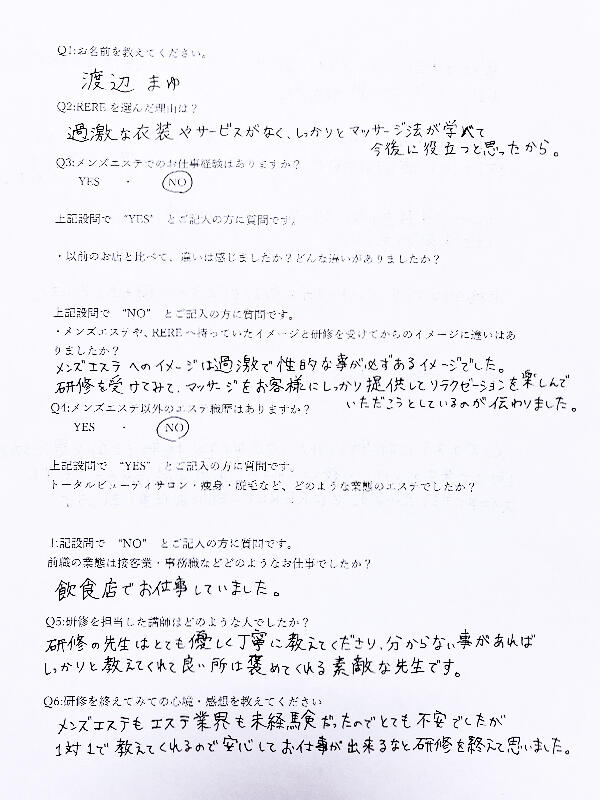 Q1:お名前を教えてください。
渡辺 まゆ
Q2:RERE を選んだ理由は？
過激な衣装やサービスがなく、しっかりとマッサージ法が学べて
今後に役立つと思ったから。
Q3:メンズエステでのお仕事経験はありますか？
YES ・ NO
上記設問で “YES” とご記入の方に質問です。
・以前のお店と比べて、違いは感じましたか？どんな違いがありましたか？
上記設問で “NO” とご記入の方に質問です。
・メンズエステや、RERE へ持っていたイメージと研修を受けてからのイメージに違いはあ
りましたか？
メンズエステへのイメージは過激で性的な事が必ずあるイメージでした。
研修を受けてみて、マッサージをお客様にしっかり提供してリラクゼーションを楽しんで
いただこうとしているのが伝わりました。
Q4:メンズエステ以外のエステ職歴はありますか？
YES ・ NO
上記設問で “YES” とご記入の方に質問です。
トータルビューティサロン・痩身・脱毛など、どのような業態のエステでしたか？
上記設問で “NO” とご記入の方に質問です。
前職の業態は接客業・事務職などどのようなお仕事でしたか？
飲食店でお仕事していました。
Q5:研修を担当した講師はどのような人でしたか？
研修の先生はとても優しく丁寧に教えてくださり、分からない事があれば
しっかりと教えてくれて良い所は褒めてくれる素敵な先生です。
Q6:研修を終えてみての心境・感想を教えてください
メンズエステもエステ業界も未経験だったのでとても不安でしたが
1対1で教えてくれるので安心してお仕事が出来るなと研修を終えて思いました。